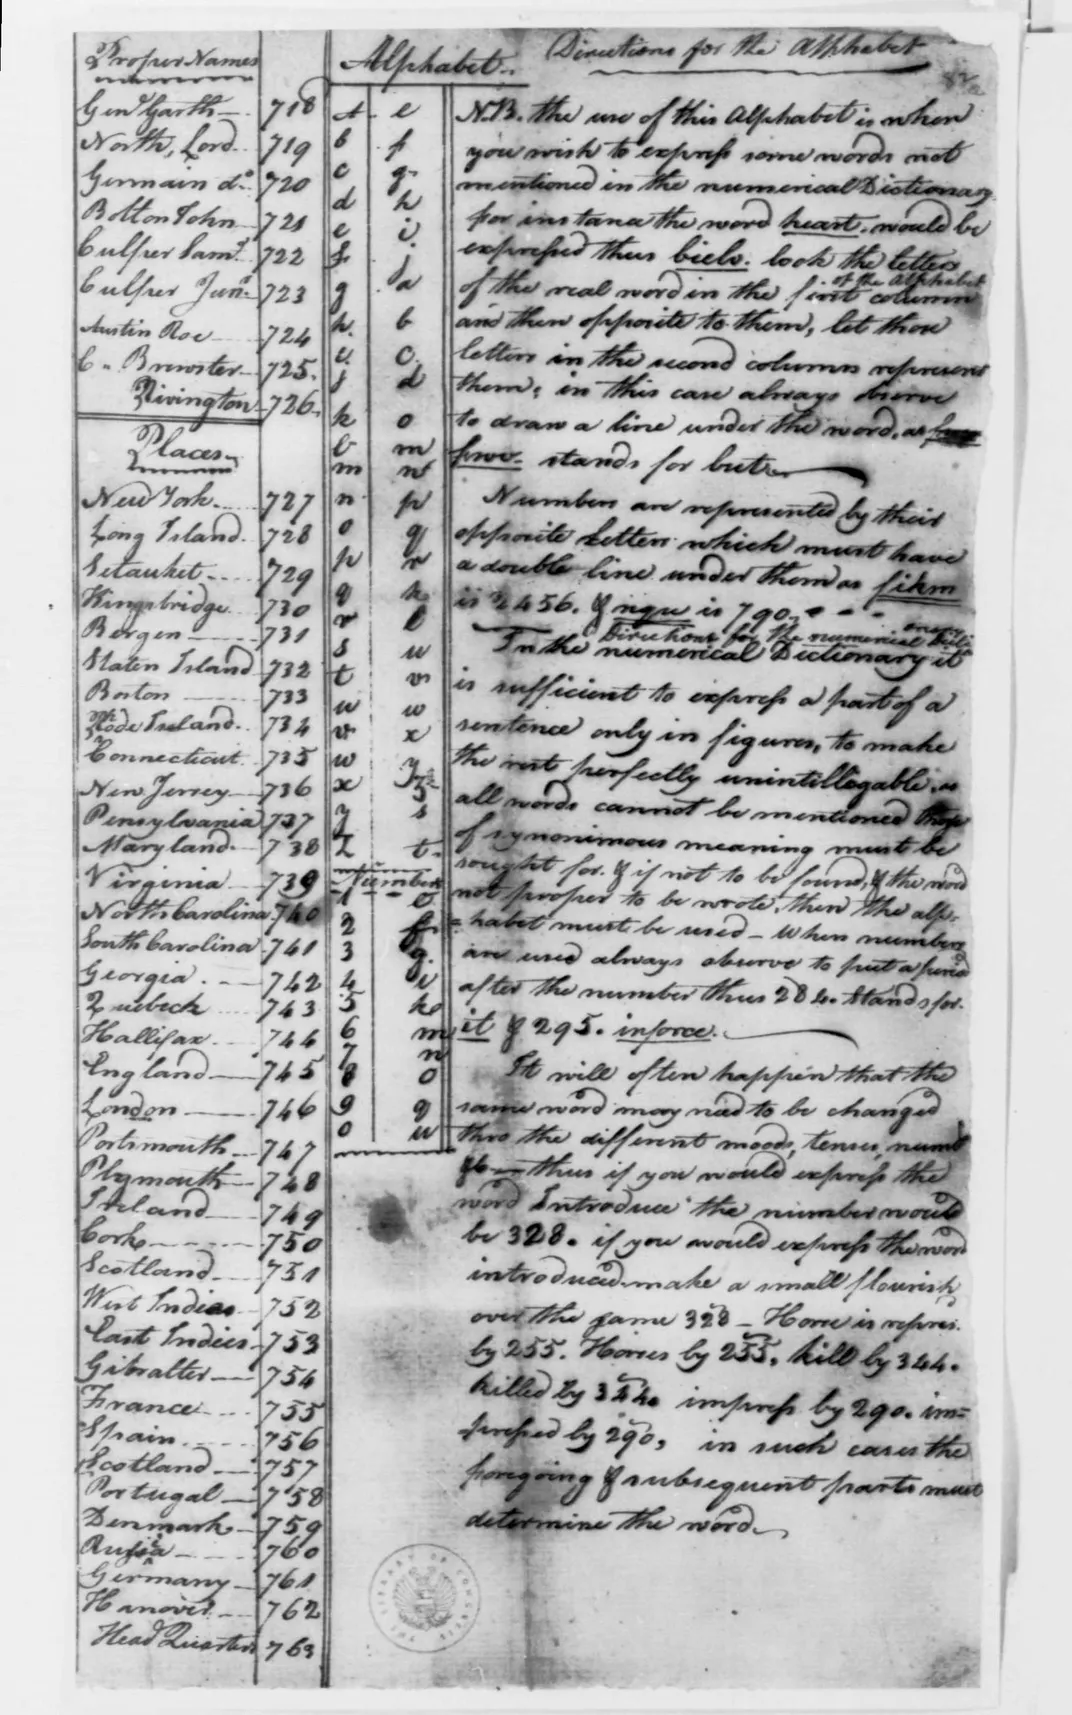 Proper Names
Genl Garth 718
North, Lord 719
Germain do. 720
Bolton John 721
Culper Saml. 722
Culper Junr. 723
Austin Roe 724
C. Brewster 725.
Rivington 726.
Places
New York 727
Long Island 728
Setauket 729
Kingsbridge 730
Bergen 731
Staten Island 732
Boston 733
Rhode Island 734
Connecticut 735
New Jersey 736
Pensylvania 737
Maryland 738
Virginia 739
North Carolina 740
South Carolina 741
Georgia 742
Quebeck 743
Hallifax 744
England 745
London 746
Portsmouth 747
Plymouth 748
Ireland 749
Cork 750
Scotland 751
West Indies 752
East Indies 753
Gibralter 754
France 755
Spain 756
Scotland 757
Portugal 758
Denmark 759
Russia 760
Germany 761
Hanover 762
Head Quarters 763
Alphabet
A e
b f
c g
d h
e i
f j
g a
h b
i c
j d
k o
l m
m n
n p
o q
p r
q k
r l
s u
t v
u w
v x
w y
x z
y s
Z t
Numbers
1 e
2 f
3 g
4 i
5 k
6 m
7 n
8 o
9 q
0 u
Directions for the Alphabet
N.B. the use of this Alphabet is when
you wish to express some words not
mentioned in the numerical Dictionary
for instance the word heart. would be
expressed thus bielv. look the letters
of the real word in the first column of the Alphabet
and then opposite to them, let those
letters in the second column represent
them; in this case always observe
to draw a line under the word, as
fwv. stands for but
Numbers are represented by their
opposite letters which must have
a double line under them as fikm
is 2456. & nqu is 790.
Directions for the numerical
In the numerical Dictionary it
is sufficient to express a part of a
sentence only in figures, to make
the rest perfectly unintillegable, as
all words cannot be mentioned those
of synonimous meaning must be
sought for. & if not to be found, & the word
not proper to be wrote, then the alp=
=habet must be used - When numbers
are used always observe to put a period
after the number thus 284. stands for.
it & 295. inforce.
It will often happen that the
same word may need to be changed
thro the different moods, tenses, numb
thus if you would express the
word Introduce the number would
be 328. if you would express the word
introduced make a small flourish
over the same 328 - Horse is repres.
by 255. Horses by 255. kill by 344.
killed by 344. impress by 290. im=
pressed by 290, in such cases the
foregoing & subsequent parts must
determine the word
THE LIBRARY OF CONGRESS